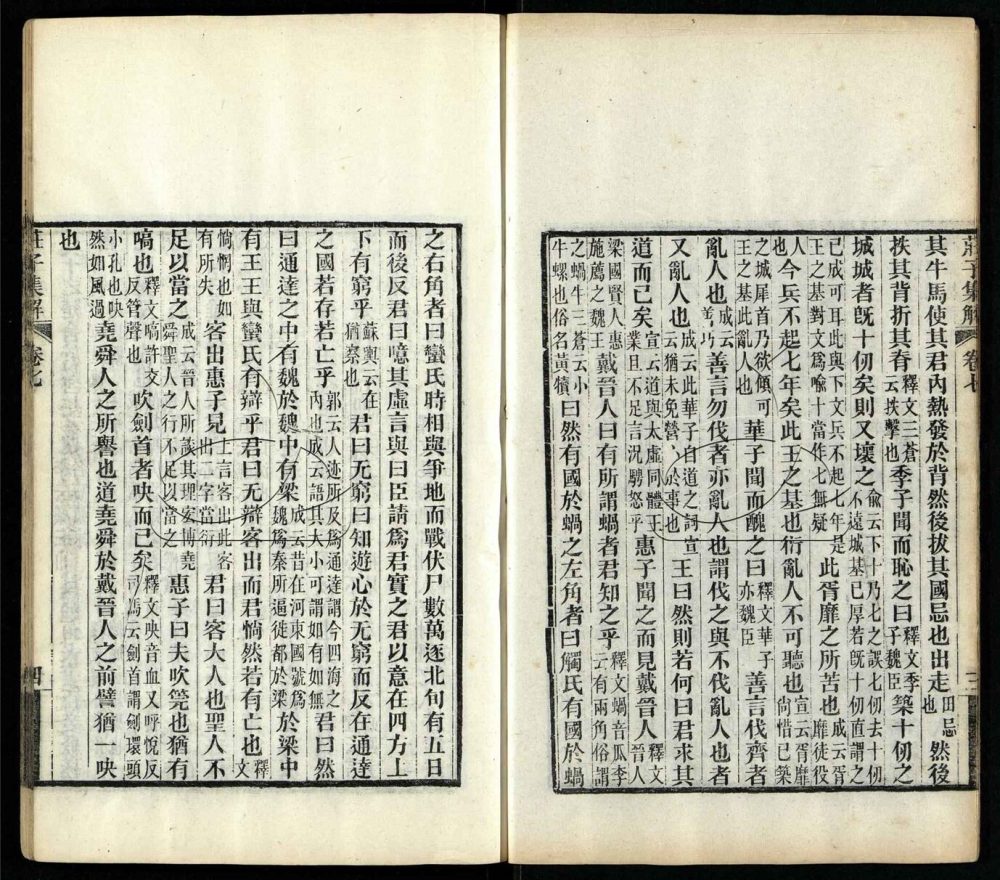 莊子集解 卷七
其牛馬使其君內熱發於背然後拔其國忌也出走田忌也然後
抶其背折其脊釋文三蒼云抶擊也季子聞而恥之曰釋文季子魏臣築十仞之
城城者旣十仞矣則又壞之俞云下十乃七之誤七仞去十仞不遠城基已厚若旣十仞直謂之
已成可耳此與下文兵不起七年是王之基對文爲喻十當作七無疑此胥靡之所苦也成云胥靡徒役
人也今兵不起七年矣此王之基也衍亂人不可聽也宣云胥靡尙惜已築
之城犀首乃欲傾可王之基此亂人也華子聞而醜之曰釋文華子亦魏臣善言伐齊者
亂人也成云善巧善言勿伐者亦亂人也謂伐之與不伐亂人也者
又亂人也成云此華子自道之詞宣云猶未免營營於事也王曰然則若何曰君求其
道而已矣宣云道與太虛同體王業且不足言況騁怒乎惠子聞之而見戴晉人釋文晉人
梁國賢人惠施薦之魏王戴晉人曰有所謂蝸者君知之乎釋文蝸音瓜李云有兩角俗謂
之蝸牛三蒼云小牛螺也俗名黃犢曰然有國於蝸之左角者曰觸氏有國於蝸
之右角者曰蠻氏時相與爭地而戰伏尸數萬逐北旬有五日
而後反君曰噫其虛言與曰臣請爲君實之君以意在四方上
下有窮乎蘇輿云在猶察也君曰无窮曰知遊心於无窮而反在通達
之國若存若亡乎郭云人迹所及爲通達謂今四海之內也成云語其大小可謂如有如無君曰然
曰通達之中有魏於魏中有梁成云昔在河東國號爲魏爲秦所逼徙都於梁於梁中
有王王與蠻氏有辯乎君曰无辯客出而君惝然若有亡也釋文
惝惘也如有所失客出惠子見上言客出此客出二字當衍君曰客大人也聖人不
足以當之成云晉人所談其理安博堯舜聖人之行不足以當之惠子曰夫吹筦也猶有
嗃也釋文嗃許交反管聲也吹劍首者吷而已矣釋文吷音血又呼悅反司馬云劍首謂劍環頭
小孔也吷然如風過堯舜人之所譽也道堯舜於戴晉人之前譬猶一吷
也
莊子集解 卷七 四